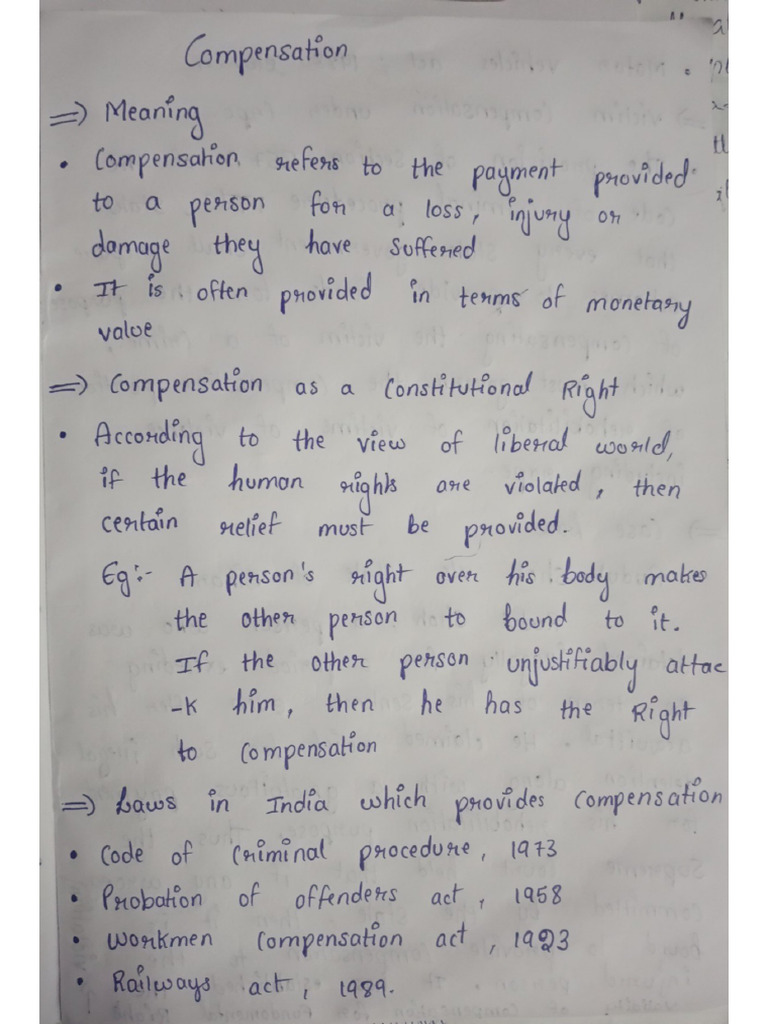 Compensation
=> Meaning
• Compensation refers to the payment provided
to a person for a loss, injury or
damage they have suffered
• It is often provided in terms of monetary
value
=> Compensation as a Constitutional Right
• According to the view of liberal world,
if the human rights are violated, then
certain relief must be provided.
Eg:- A person's right over his body makes
the other person to bound to it.
If the other person unjustifiably attac
-k him, then he has the Right
to compensation
=> Laws in India which provides compensation
• Code of Criminal procedure, 1973
• Probation of offenders act, 1958
• Workmen Compensation act, 1923
• Railways act, 1989.